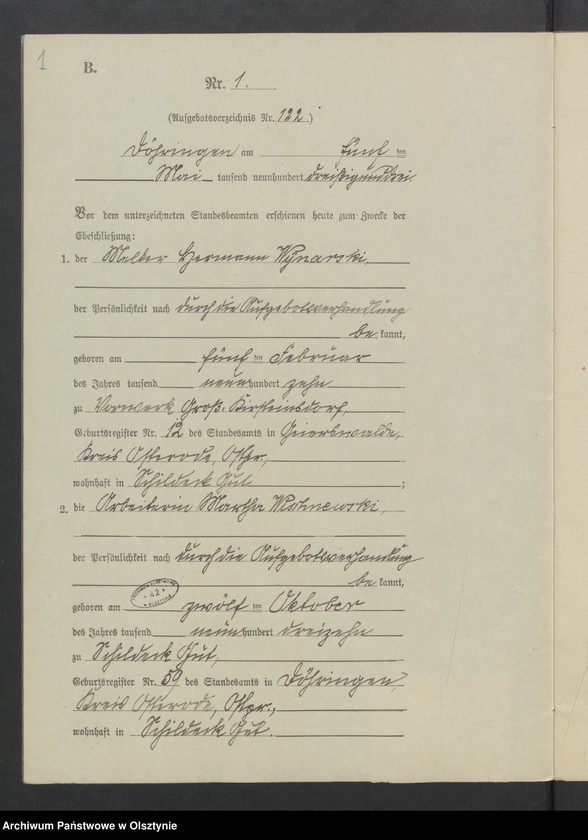 1
B.
Nr. 1.
(Aufgebotsverzeichnis Nr. 122.)
Döhringen am fünf ten
Mai tausend neunhundert dreißigunddrei.
Vor dem unterzeichneten Standesbeamten erschienen heute zum Zwecke der
Eheschließung:
1. der Melker Hermann Wynarski,
der Persönlichkeit nach durch die Aufgebotsverhandlung
be kannt,
geboren am fünf ten Februar
des Jahres tausend neunhundert zehn
zu Vorwerk Groß-Kirsteinsdorf,
Geburtsregister Nr. 12 des Standesamts in Geierswalde,
Kreis Osterode, Ostpr.,
wohnhaft in Schildeck Gut ;
2. die Arbeiterin Martha
der Persönlichkeit nach durch die Aufgebotsverhandlung
be kannt,
42
geboren am zwölf ten Oktober
des Jahres tausend neunhundert dreizehn
zu Schildeck Gut,
Geburtsregister Nr. 59 des Standesamts in Döhringen,
Kreis Osterode, Ostpr.,
wohnhaft in Schildeck Gut.
Archiwum Państwowe w Olsztynie